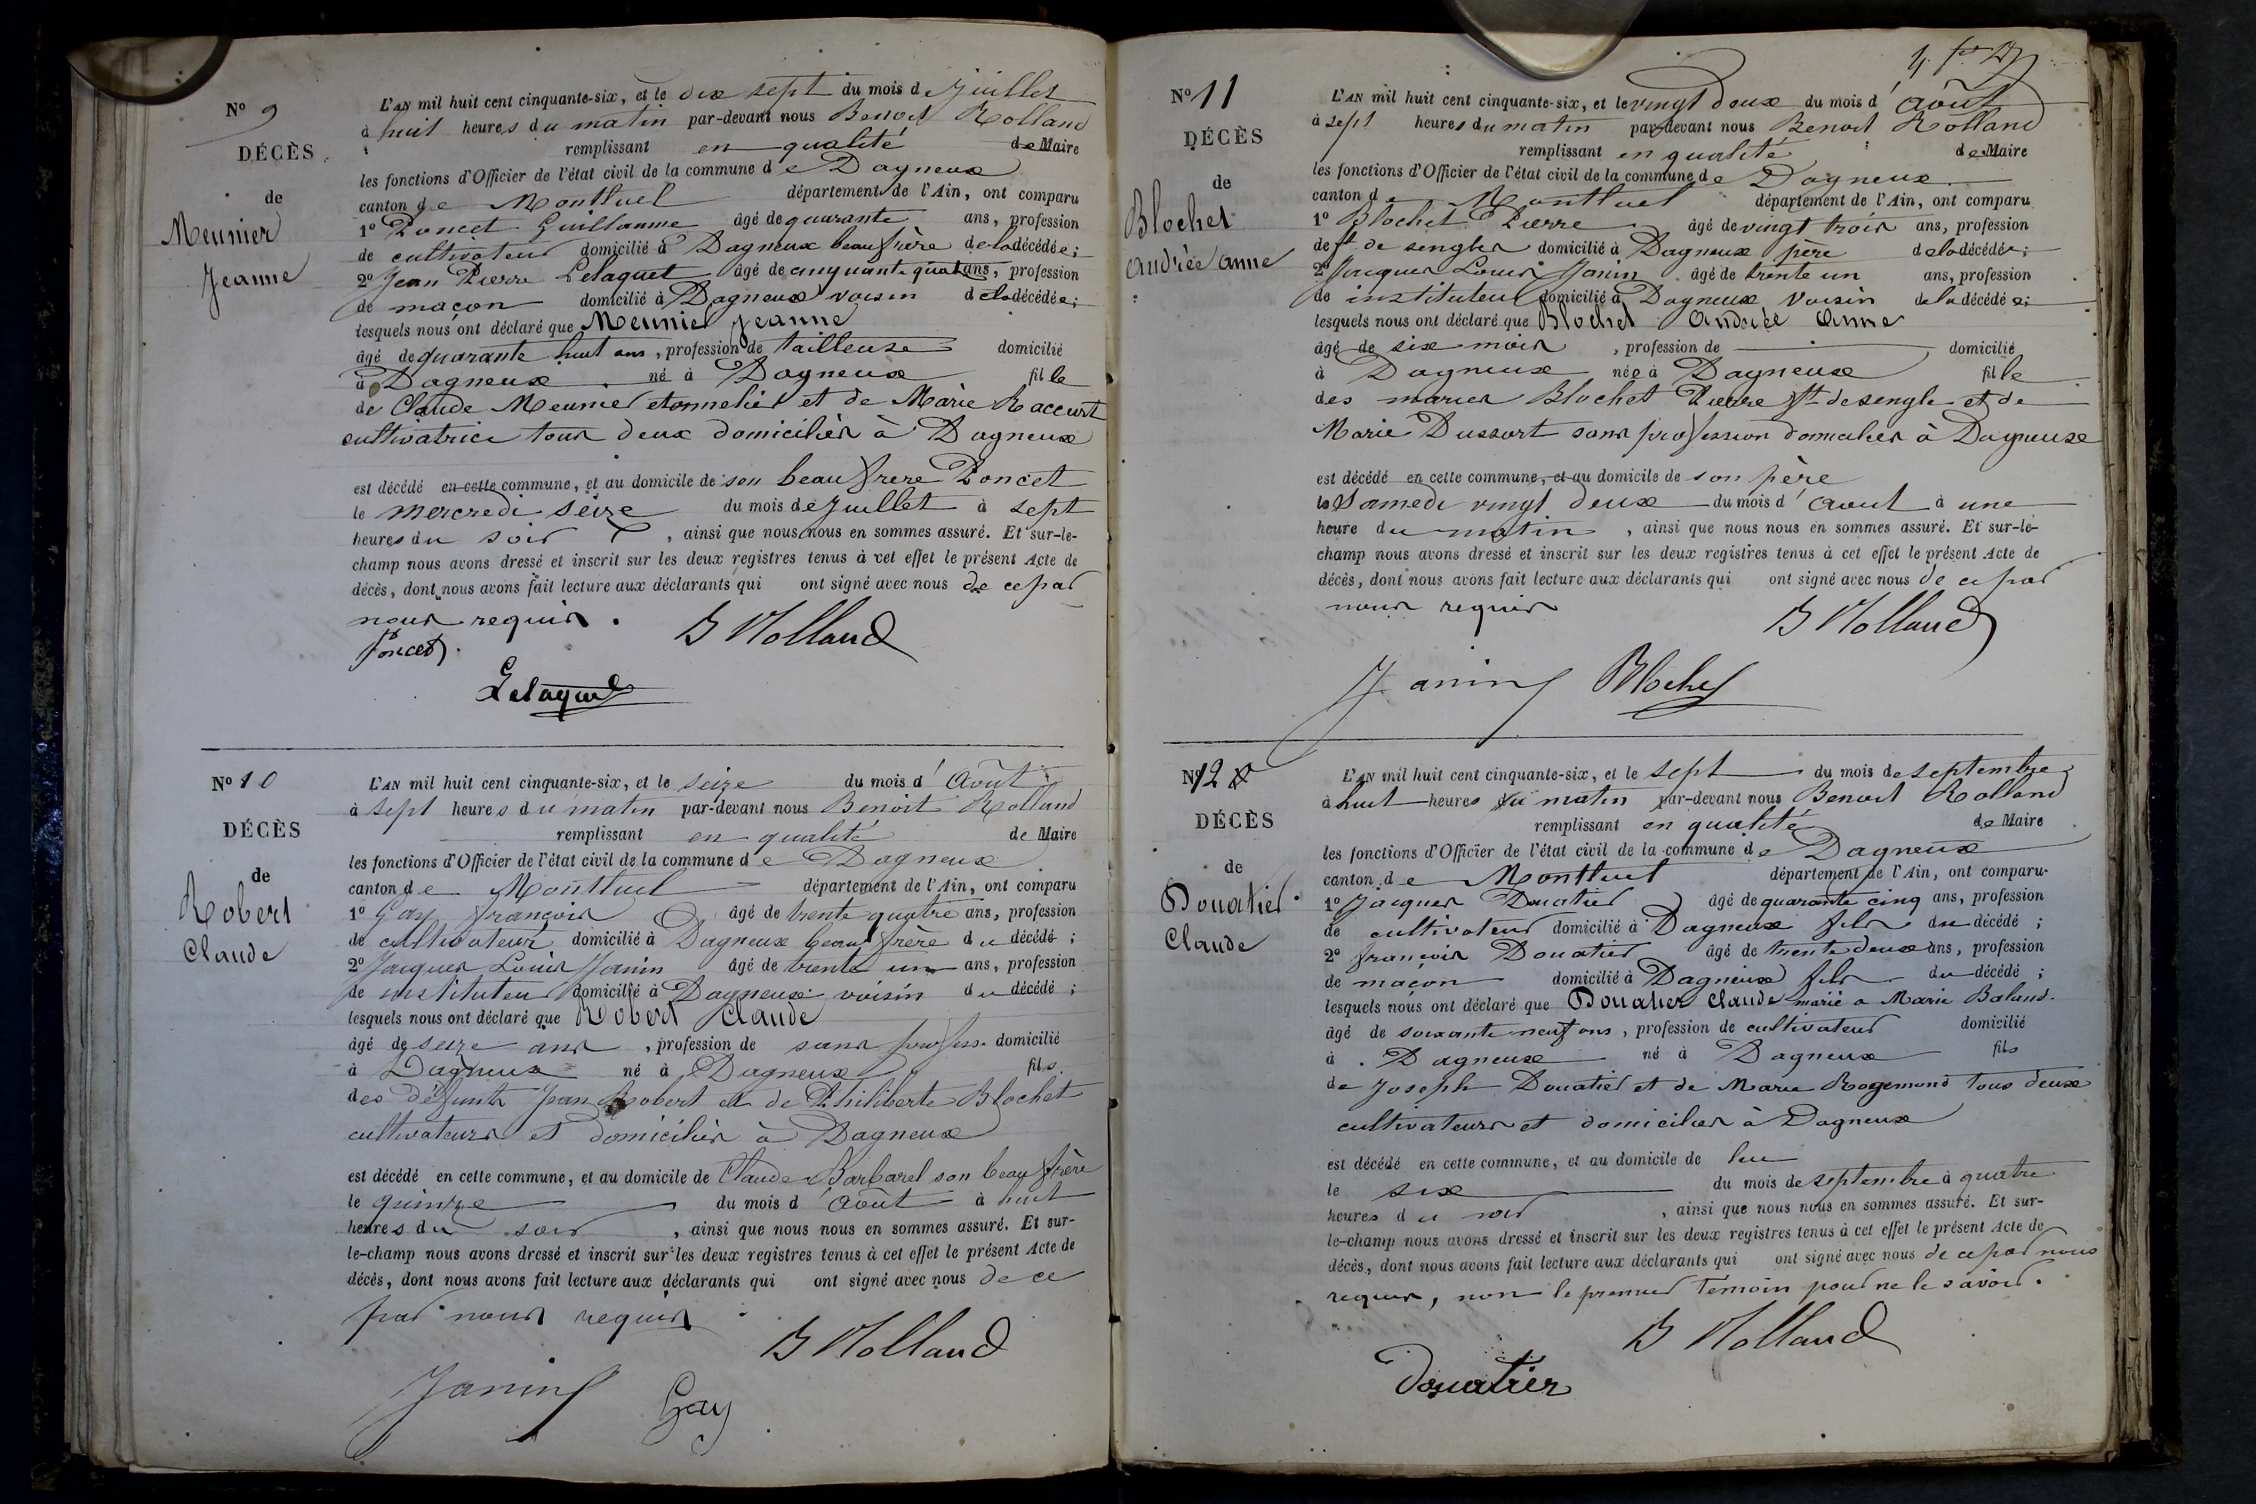 Nº 9
DÉCÈS
de
Meunier
Jeanne
L'AN mil huit cent cinquante-six, et le dix sept du mois de Juillet
à huit heures du matin par-devant nous Benoit Rolland
remplissant en qualité de Maire
les fonctions d'Officier de l'état civil de la commune de Dagneux
canton de Montluel département de l'Ain, ont comparu
1º Poncet Guillaume âgé de quarante ans, profession
de cultivateur domicilié à Dagneux beau frère de la décédée;
2º Jean Pierre Lelaquet âgé de cinquante quatre ans, profession
de maçon domicilié à Dagneux voisin de la décédée;
lesquels nous ont déclaré que Meunier Jeanne
âgé de quarante huit ans, profession de tailleuse domicilié
à Dagneux né à Dagneux fille
de Claude Meunier et de Marie Raccurt
cultivatrice tous deux domiciliés à Dagneux
est décédé en cette commune, et au domicile de son beau frere Poncet
le mercredi seize du mois de juillet à sept
heures du soir, ainsi que nous nous en sommes assuré. Et sur-le-
champ nous avons dressé et inscrit sur les deux registres tenus à cet effet le présent Acte de
décès, dont nous avons fait lecture aux déclarants qui ont signé avec nous de ce par
nous requis.
B Rolland
Poncet
Lelaquet
Nº 10
DÉCÈS
de
Robert
Claude
L'AN mil huit cent cinquante-six, et le seize du mois d'Août
à sept heures du matin par-devant nous Benoit Rolland
remplissant en qualité de Maire
les fonctions d'Officier de l'état civil de la commune de Dagneux
canton de Montluel département de l'Ain, ont comparu
1º Gay françois âgé de trente quatre ans, profession
de cultivateur domicilié à Dagneux beau frère du décédé;
2º Jacques Louis Janin âgé de trente un ans, profession
de instituteur domicilié à Dagneux voisin du décédé;
lesquels nous ont déclaré que Robert Claude
âgé de seize ans, profession de sans domicilié
à Dagneux né à Dagneux fils
des défunts Jean Robert et de Philiberte Blochet
cultivateurs et domiciliés à Dagneux
est décédé en cette commune, et au domicile de Claude Barbarel son beau frère
le quinze du mois d'Août à huit
heures du soir, ainsi que nous nous en sommes assuré. Et sur-
le-champ nous avons dressé et inscrit sur les deux registres tenus à cet effet le présent Acte de
décès, dont nous avons fait lecture aux déclarants qui ont signé avec nous de ce
par nous requis
B Rolland
Janin
Gay
Nº 11
DÉCÈS
de
Blochet
Andrée anne
L'AN mil huit cent cinquante-six, et le vingt deux du mois d'Août
à sept heures du matin par-devant nous Benoit Rolland
remplissant en qualité de Maire
les fonctions d'Officier de l'état civil de la commune de Dagneux
canton de Montluel département de l'Ain, ont comparu
1º Blochet Pierre âgé de vingt trois ans, profession
de ft de sengles domicilié à Dagneux père de la décédée;
2º Jacques Louis Janin âgé de trente un ans, profession
de instituteur domicilié à Dagneux voisin de la décédée;
lesquels nous ont déclaré que Blochet Andrée Anne
âgé de six mois, profession de domicilié
à Dagneux née à Dagneux fille
des mariés Blochet Pierre ft de sengle et de
Marie Dussort sans profession domiciliés à Dagneux
est décédé en cette commune, et au domicile de son père
le Samedi vingt deux du mois d'aout à une
heure du matin, ainsi que nous nous en sommes assuré. Et sur-le-
champ nous avons dressé et inscrit sur les deux registres tenus à cet effet le présent Acte de
décès, dont nous avons fait lecture aux déclarants qui ont signé avec nous de ce par
nous requis
B Rolland
Janin Blochet
Nº 12
DÉCÈS
de
Douatier
Claude
L'AN mil huit cent cinquante-six, et le sept du mois de septembre
à huit heures du matin par-devant nous Benoit Rolland
remplissant en qualité de Maire
les fonctions d'Officier de l'état civil de la commune de Dagneux
canton de Montluel département de l'Ain, ont comparu
1º Jacques Douatier âgé de quarante cinq ans, profession
de cultivateur domicilié à Dagneux fils du décédé;
2º françois Douatier âgé de trente deux ans, profession
de maçon domicilié à Dagneux fils du décédé;
lesquels nous ont déclaré que Douatier Claude marié a Marie Baland
âgé de soixante neuf ans, profession de cultivateur domicilié
à Dagneux né à Dagneux fils
de Joseph Douatier et de Marie Rogemond tous deux
cultivateurs et domiciliés à Dagneux
est décédé en cette commune, et au domicile de lui
le six du mois de septembre à quatre
heures du soir, ainsi que nous nous en sommes assuré. Et sur-
le-champ nous avons dressé et inscrit sur les deux registres tenus à cet effet le présent Acte de
décès, dont nous avons fait lecture aux déclarants qui ont signé avec nous de ce par nous
requis, non le premier Temoin pour ne le savoir.
B Rolland
Douatier